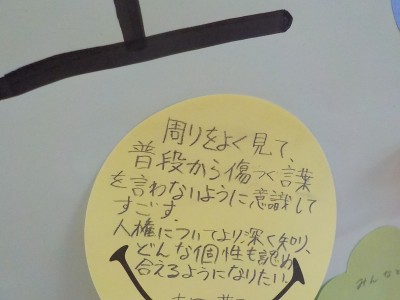 周りをよく見て、
普段から傷つく言葉
を言わないように意識して
すごす.
人権についてより深く知り、
どんな個性も認め
合えるようになりたい.
みんな